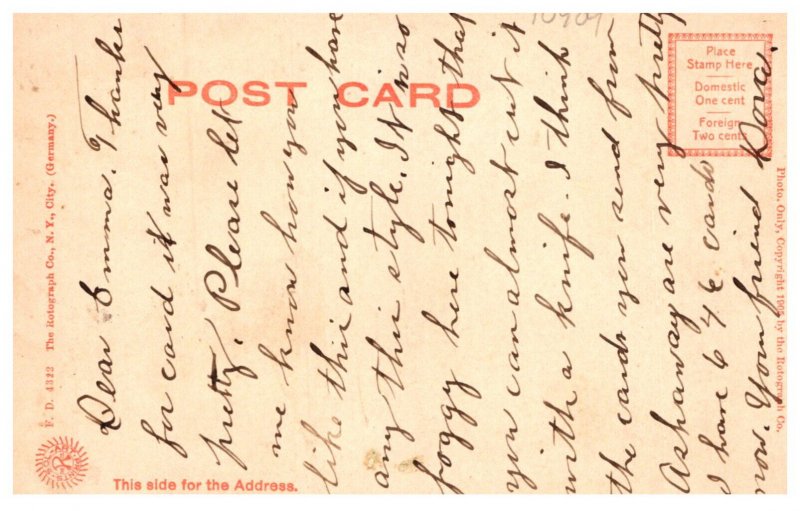 POST CARD
Place
Stamp Here
Domestic
One cent
Foreign
Two cents
F. D. 4322 The Rotograph Co., N. Y., City. (Germany.)
Photo. Only, Copyright 1905 by the Rotograph Co.
This side for the Address.
Dear Emma. Thanks
for card it was very
pretty. Please let
me know how you
like this and if you have
any this style. It is so
foggy here tonight that
you can almost cut it
with a knife. I think
the cards you send from
Ashaway are very pretty
I have 646 cards
now. Your friend Dora.